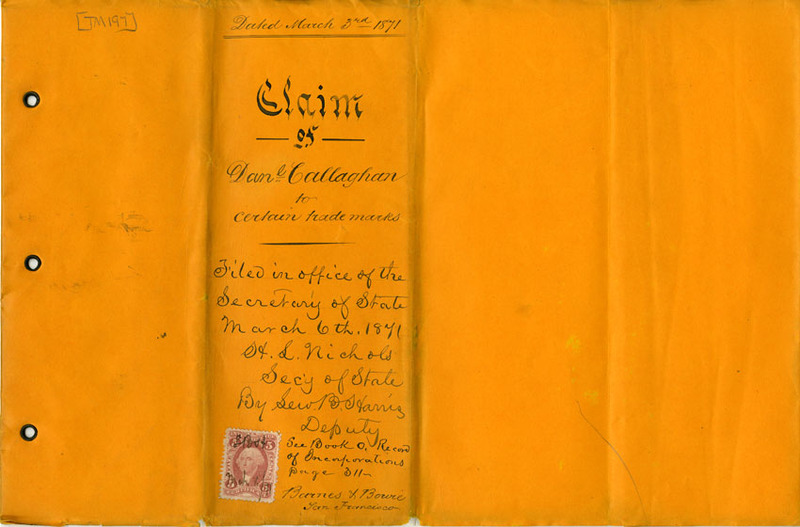 [TM197]
Dated March 3rd 1871
Claim
of
Danl Callaghan
to
certain trade marks
Filed in office of the
Secretary of State
March 6th. 1871
H. L. Nichols
Secy of State
By Lew B Harris
Deputy
See Book O. Record
of Incorporations
page 311-
Barnes & Bowie
San Francisco
5